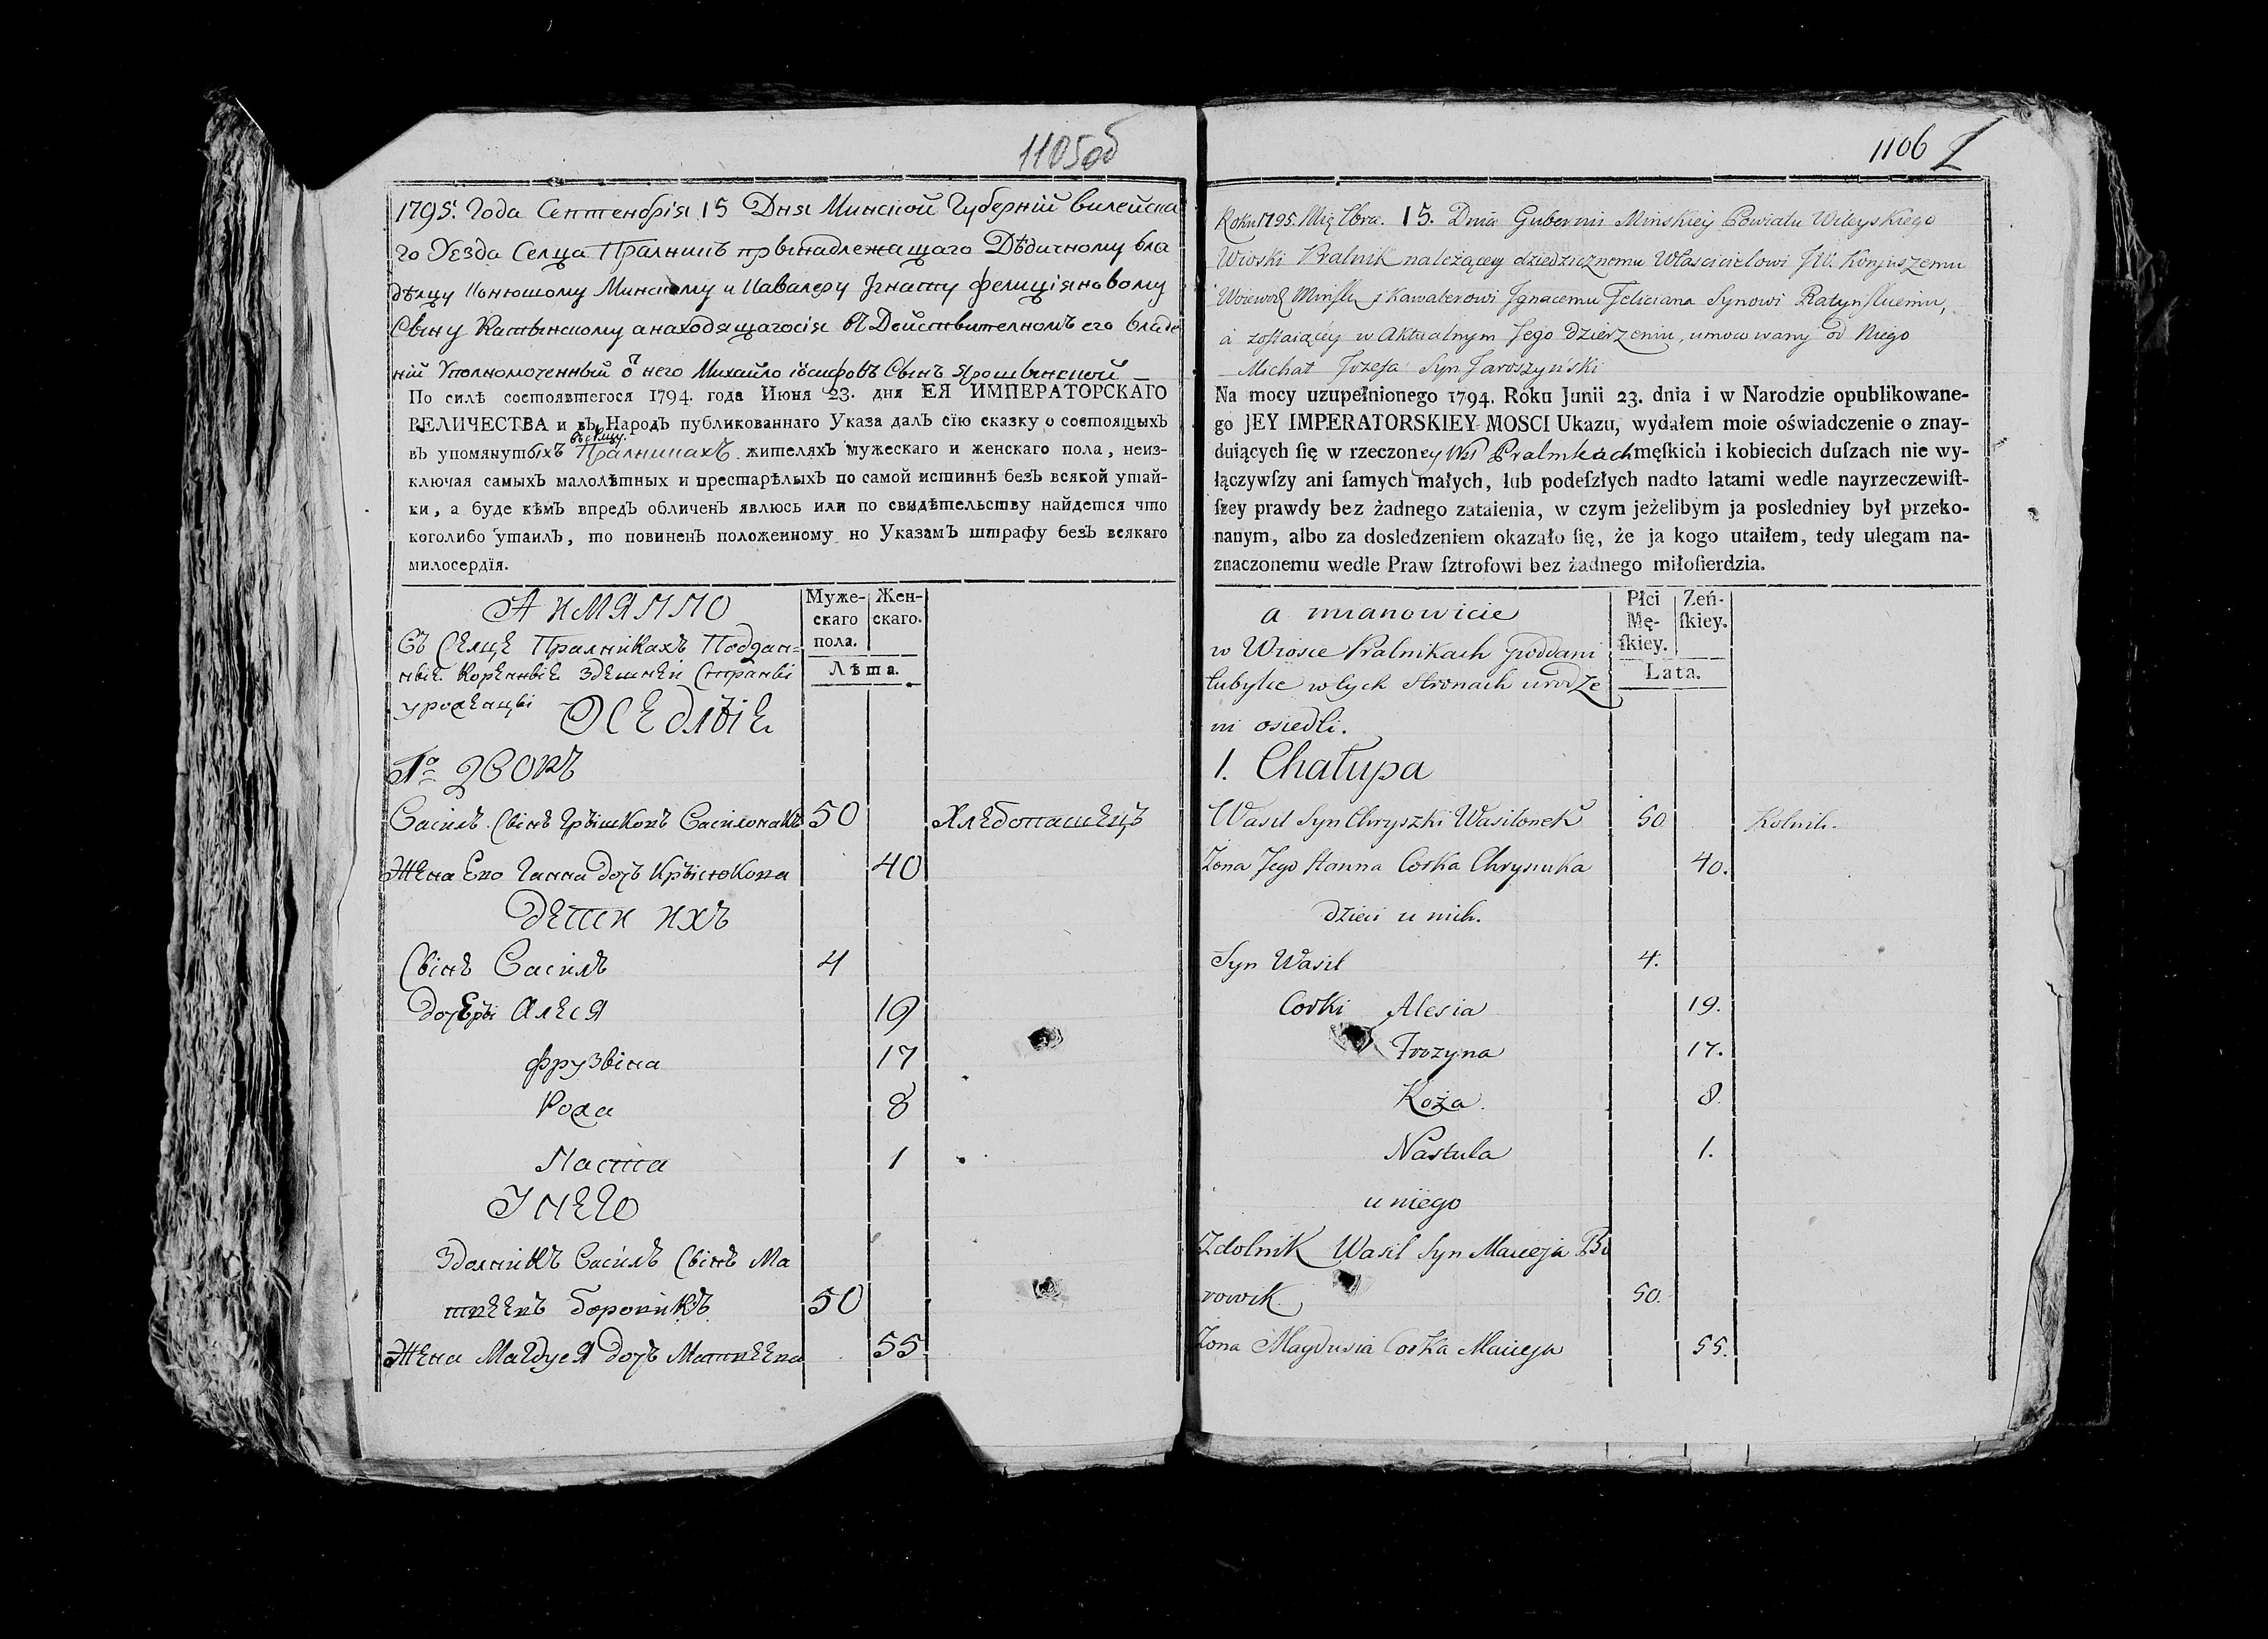 1105об
1795. Года Септенбрія 15 Дня Минской Губерній Вилейска
го Уезда Селца Пралникъ прынадлежащаго Дѣдичному Вла
дѣлцу Конюшому Минскому и Кавалеру Jгнату Фелиціяновому
Сыну Ратынскому а находящагосія въ Действителномъ его Владе
ній Уполномоченный от него Михайло іосифовъ Сынъ Ярошынской
По силѣ состоявшегося 1794. года Июня 23. дня ЕЯ ИМПЕРАТОРСКАГО
ВЕЛИЧЕСТВА и въ Народъ публикованнаго Указа далъ сїю сказку о состоящыхъ
въ селцу
въ упомянутыхъ Пралникахъ жителяхъ мужескаго и женскаго пола, неиз-
ключая самыхъ малолѣтных и престарѣлыхъ по самой истиннѣ безъ всякой утай-
ки, а буде кѣмъ впредъ обличенъ явлюсь или по свидѣтельству найдется что
коголибо утаилъ, то повиненъ положенному но Указамъ штрафу безъ всякаго
милосердїя.
А имянно
Въ Селце Пралникахъ Поддан-
ныіе. Коренныіе здешней Страны
уроженцы Оседлыіе
Муже-
скаго
пола.
Жен-
скаго.
Лѣта.
1º дворъ
Василь Сынъ Грышковъ Василонакъ 50 Хлебопашецъ
Жена Ево Ганна дочъ Крысюкова 40
дети ихъ
Сынъ Василь 4
дочеры Алеся 19
Фрузына 17
Рожа 8
Наста 1
У него
Здолникъ Василь Сынъ Ма
твеевъ Боровикъ 50
Жена Магдуся дочъ Матвеева 55
1106
Roku 1795. Mię 7bra. 15. Dnia Gubernii Minskiey Powiatu Wileyskiego
Wioski Pralnik należącey dziedzicznemu Włascicielowi JW. Konjuszemu
Woiewod Minsk i Kawalerowi Jgnacemu Feliciana Synowi Ratynskiemu,
a zostaiącey w Aktualnym Jego dzierzeniu, umocowany od Niego
Michał Jozefa Syn Jaroszyński
Na mocy uzupełnionego 1794. Roku Junii 23. dnia i w Narodzie opublikowane-
go JEY IMPERATORSKIEY MOSCI Ukazu, wydałem moie oświadczenie o znay-
duiących ſię w rzeczoney Wsi Pralnikach męſkich i kobiecich duſzach nie wy-
łączywſzy ani ſamych małych, lub podeſzłych nadto latami wedle nayrzeczewiſt-
ſzey prawdy bez żadnego zataienia, w czym jeżelibym ja posledniey był przeko-
nanym, albo za dosledzeniem okazało ſię, że ja kogo utaiłem, tedy ulegam na-
znaczonemu wedle Praw ſztrofowi bez żadnego miłoſierdzia.
a mianowicie
w Wiosce Pralnikach poddani
tubylce w tych stronach urodze
ni osiedli.
Płci
Mę-
ſkiey.
Zeń-
ſkiey.
Lata.
1. Chałupa
Wasil Syn Chryszki Wasilonek 50 Rolnik.
Żona Jego Hanna Corka Chrysiuka 40.
dzieci u nich.
Syn Wasil 4.
Corki Alesia 19.
Frozyna 17.
Roża. 8.
Nastula 1.
u niego
Zdolnik Wasil Syn Macieja Bo
rowik. 50.
Żona Magdusia Corka Macieja 55.